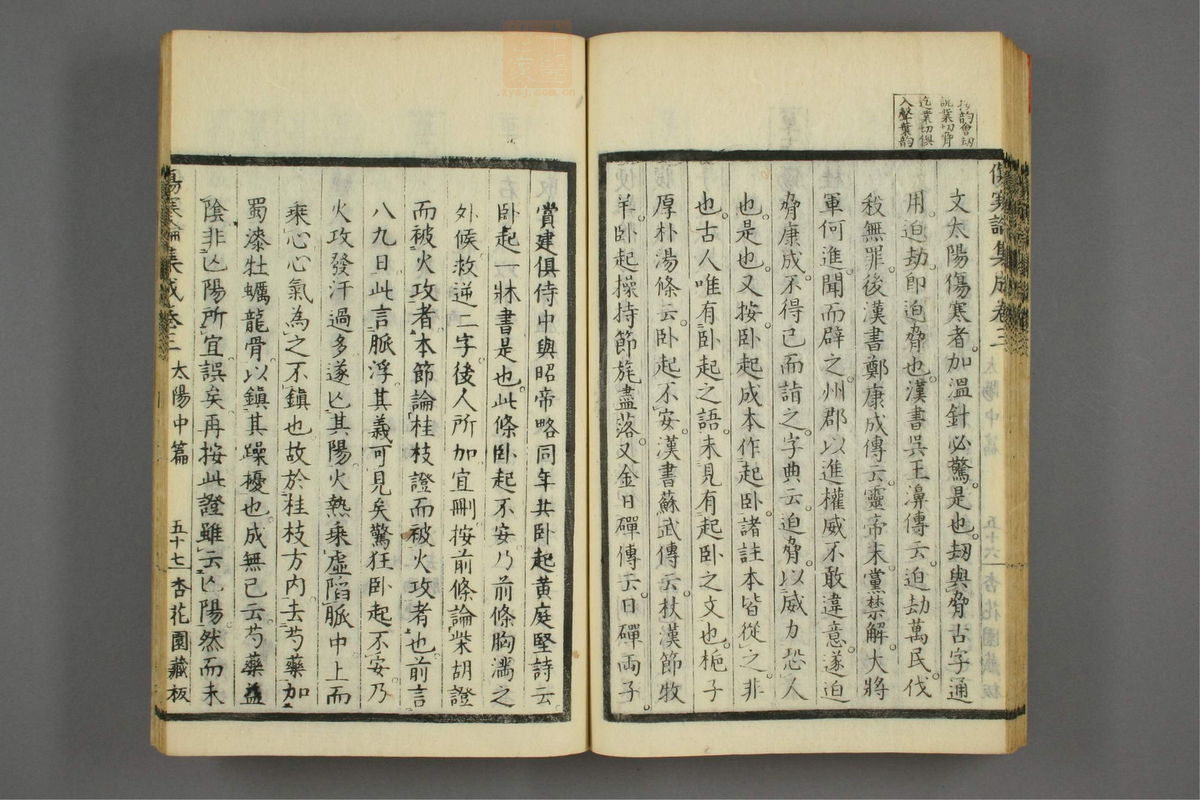 劫韵會刧
訖業切脅
迄業切俱
入聲葉韵
傷寒論集成卷三 太陽中篇 五十六 杏花園藏板
文太陽傷寒者。加溫針必驚。是也。刼與脅古字通
用。迫劫即迫脅也。漢書吳王濞傳云。迫劫萬民。伐
殺無罪。後漢書鄭康成傳云。靈帝末。黨禁解。大將
軍何進聞而辟之。州郡以進權威。不敢違意。遂迫
脅康成。不得已而詣之。字典云。迫脅。以威力恐人
也。是也。又按臥起。成本作起臥。諸註本皆從之。非
也。古人唯有臥起之語。未見有起臥之文也。梔子
厚朴湯條云。臥起不安。漢書蘇武傳云。杖漢節牧
羊。臥起操持。節旄盡落。又金日磾傳云。日磾兩子。
賞建俱侍中。與昭帝略同年。共臥起。黃庭堅詩云。
臥起一牀書。是也。此條臥起不安。乃前條胸滿之
外候。救逆二字。後人所加。宜刪。按前條論柴胡證
而被火攻者。本節論桂枝證而被火攻者也。前言
八九日。此言脈浮。其義可見矣。驚狂臥起不安。乃
火攻發汗過多。遂亾其陽。火熱乘虛陷脈中。上而
乘心。心氣為之不鎮也。故於桂枝方內。去芍藥。加
蜀漆牡蠣龍骨。以鎮其躁擾也。成無己云。芍藥益
陰。非亾陽所宜。誤矣。再按此證雖云亾陽。然而未
傷寒論集成卷三 太陽中篇 五十七 杏花園藏板